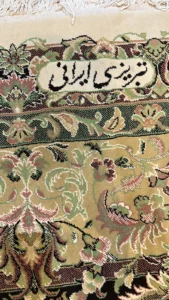 تبریزی ایرانی